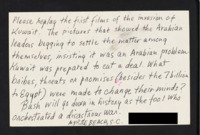 Please replay the first films of the invasion of
Kuwait. The pictures that showed the Arabian
leaders begging to settle the matter among
themselves, insisting it was an Arabian problem.
Kuwait was prepared to cut a deal. What
bribes, threats or promises (besides the 7 billion
to Egypt) were made to change their minds?
Bush will go down in history as the fool who
orchestrated a disastrous war.